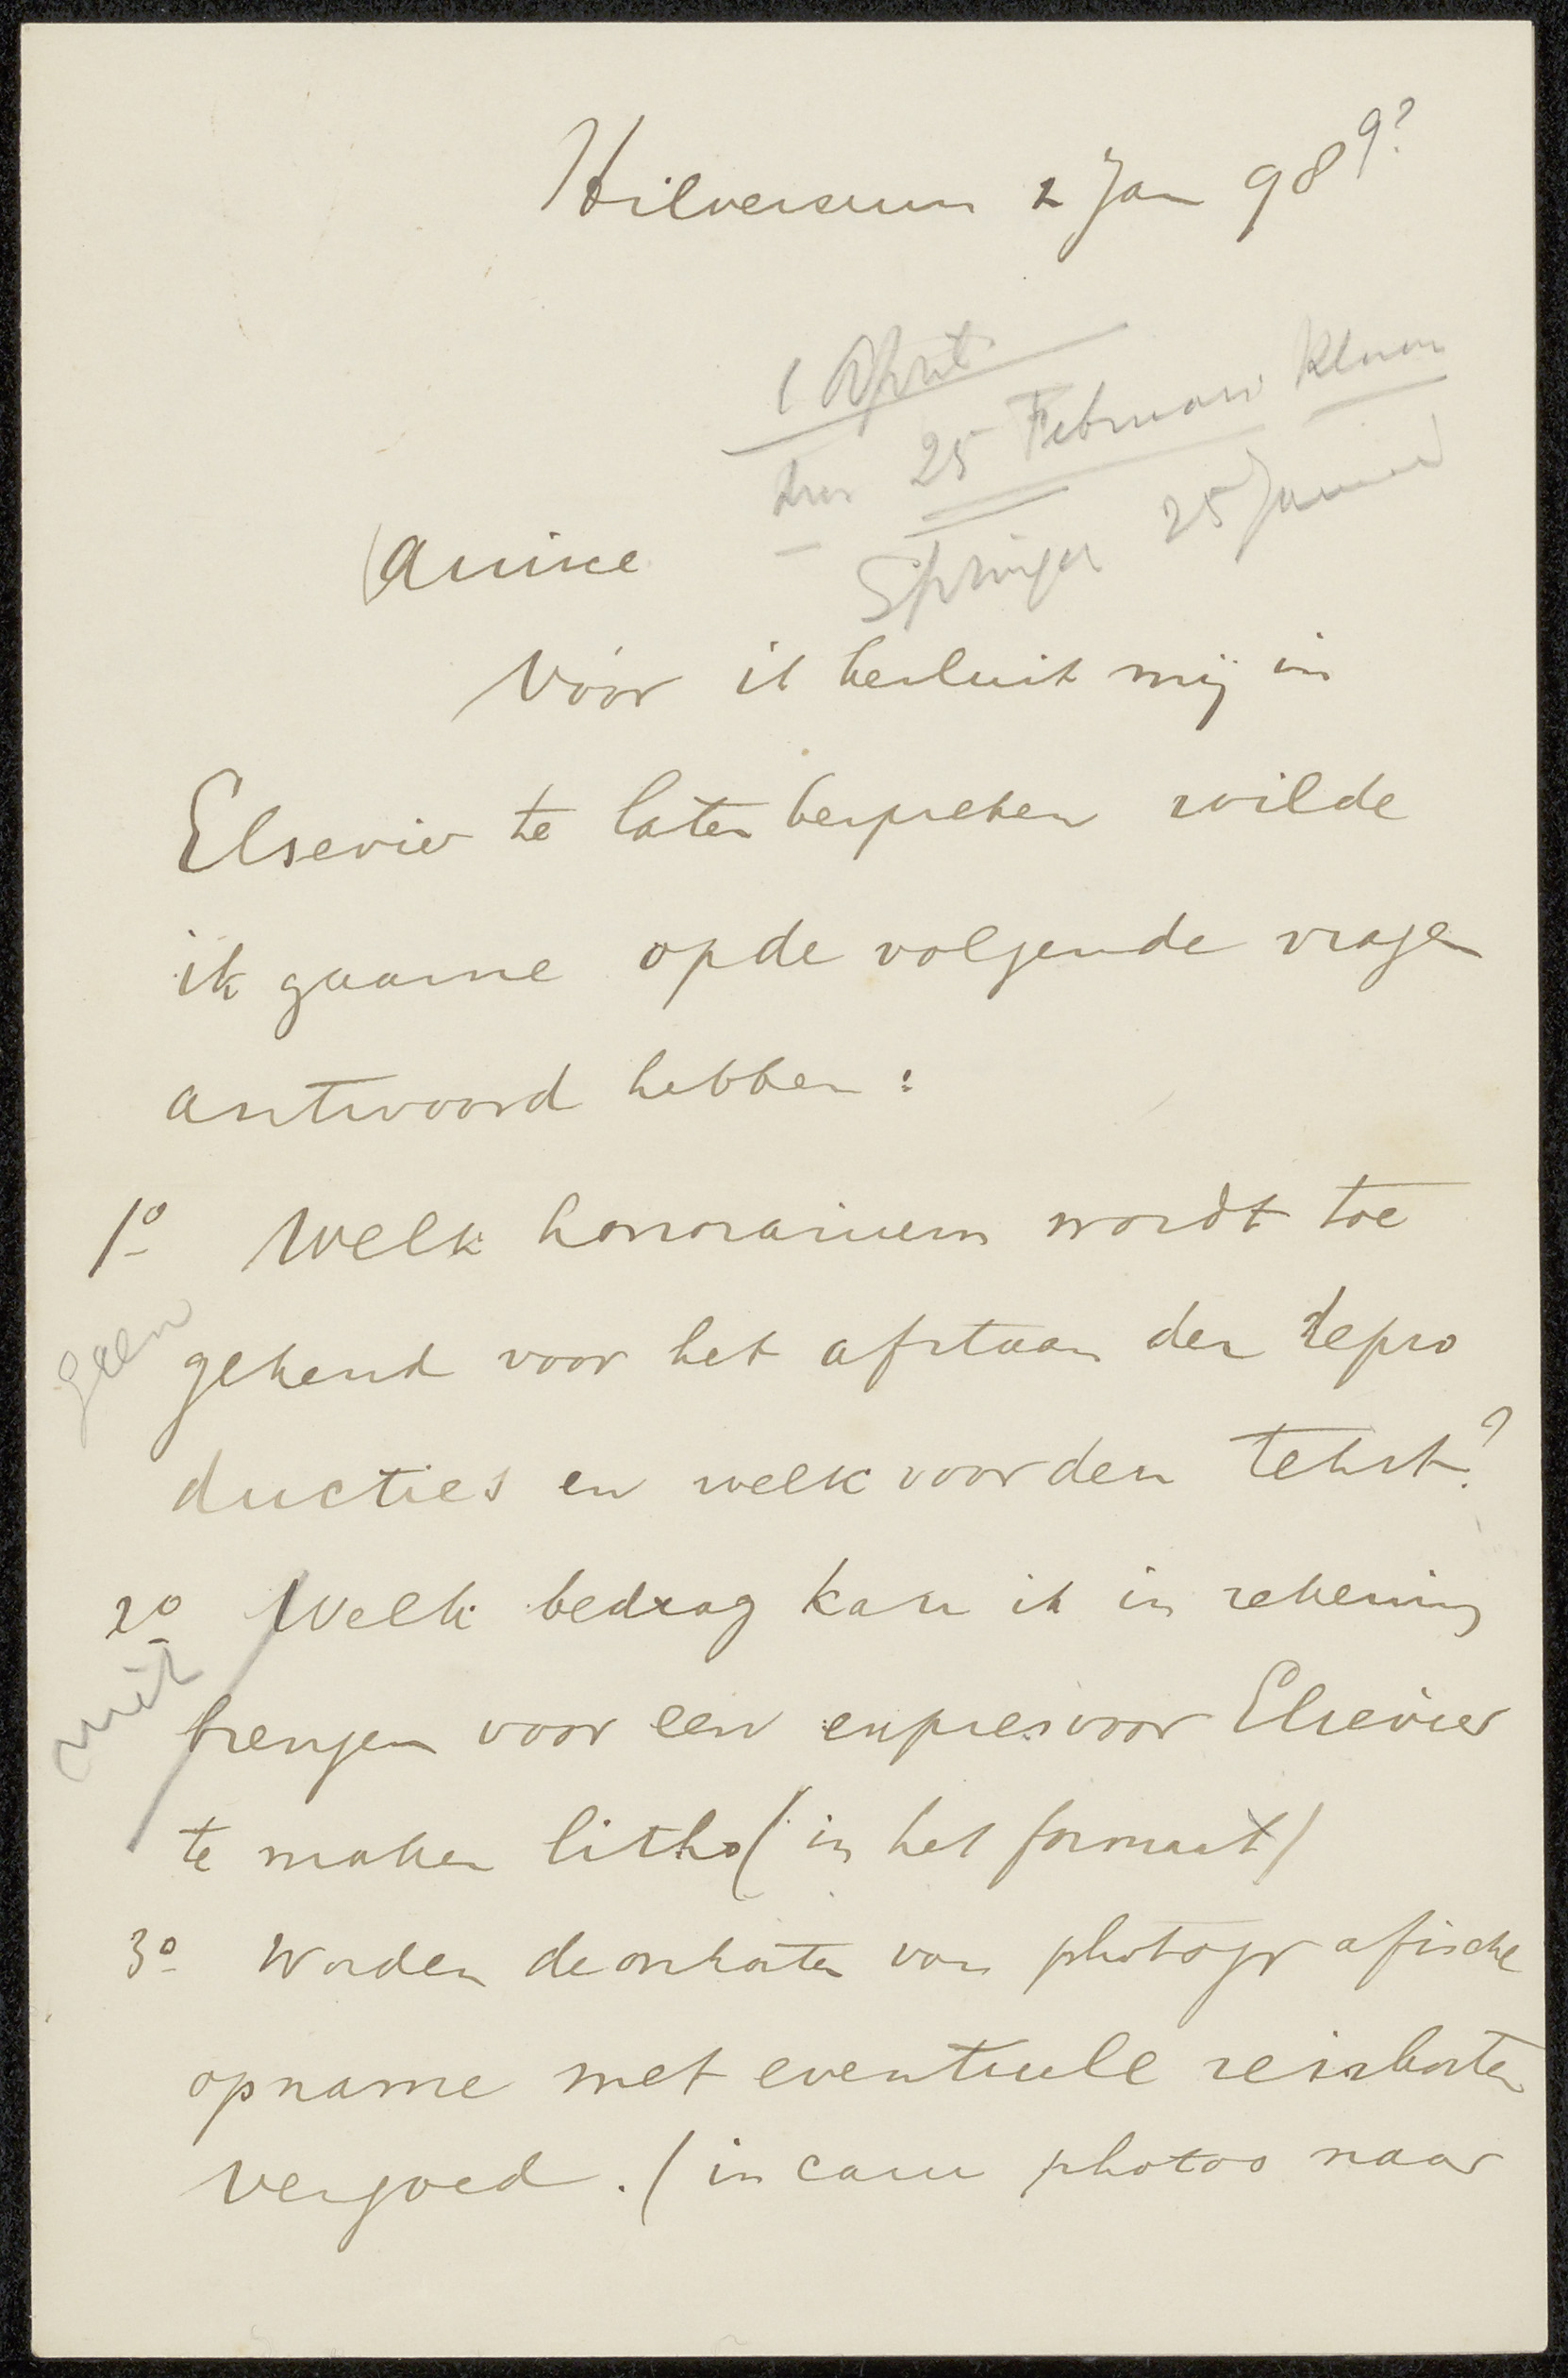 Hilversum 2 Jan 98 9?
1 April
25 Februari
Springer 25 Januari
Amice
Vóór ik besluit mij in
Elsevier te laten bespreken wilde
ik gaarne op de volgende vragen
antwoord hebben:
1o Welk honorarium wordt toe
geen
gekend voor het afstaan der repro
ducties en welk voor den tekst?
2o Welk bedrag kan ik in rekening
niet
brengen voor een expres voor Elsevier
te maken litho (in het formaat)
3o Worden de onkosten van photografische
opname met eventuele reiskosten
vergoed. (in casu photos naar